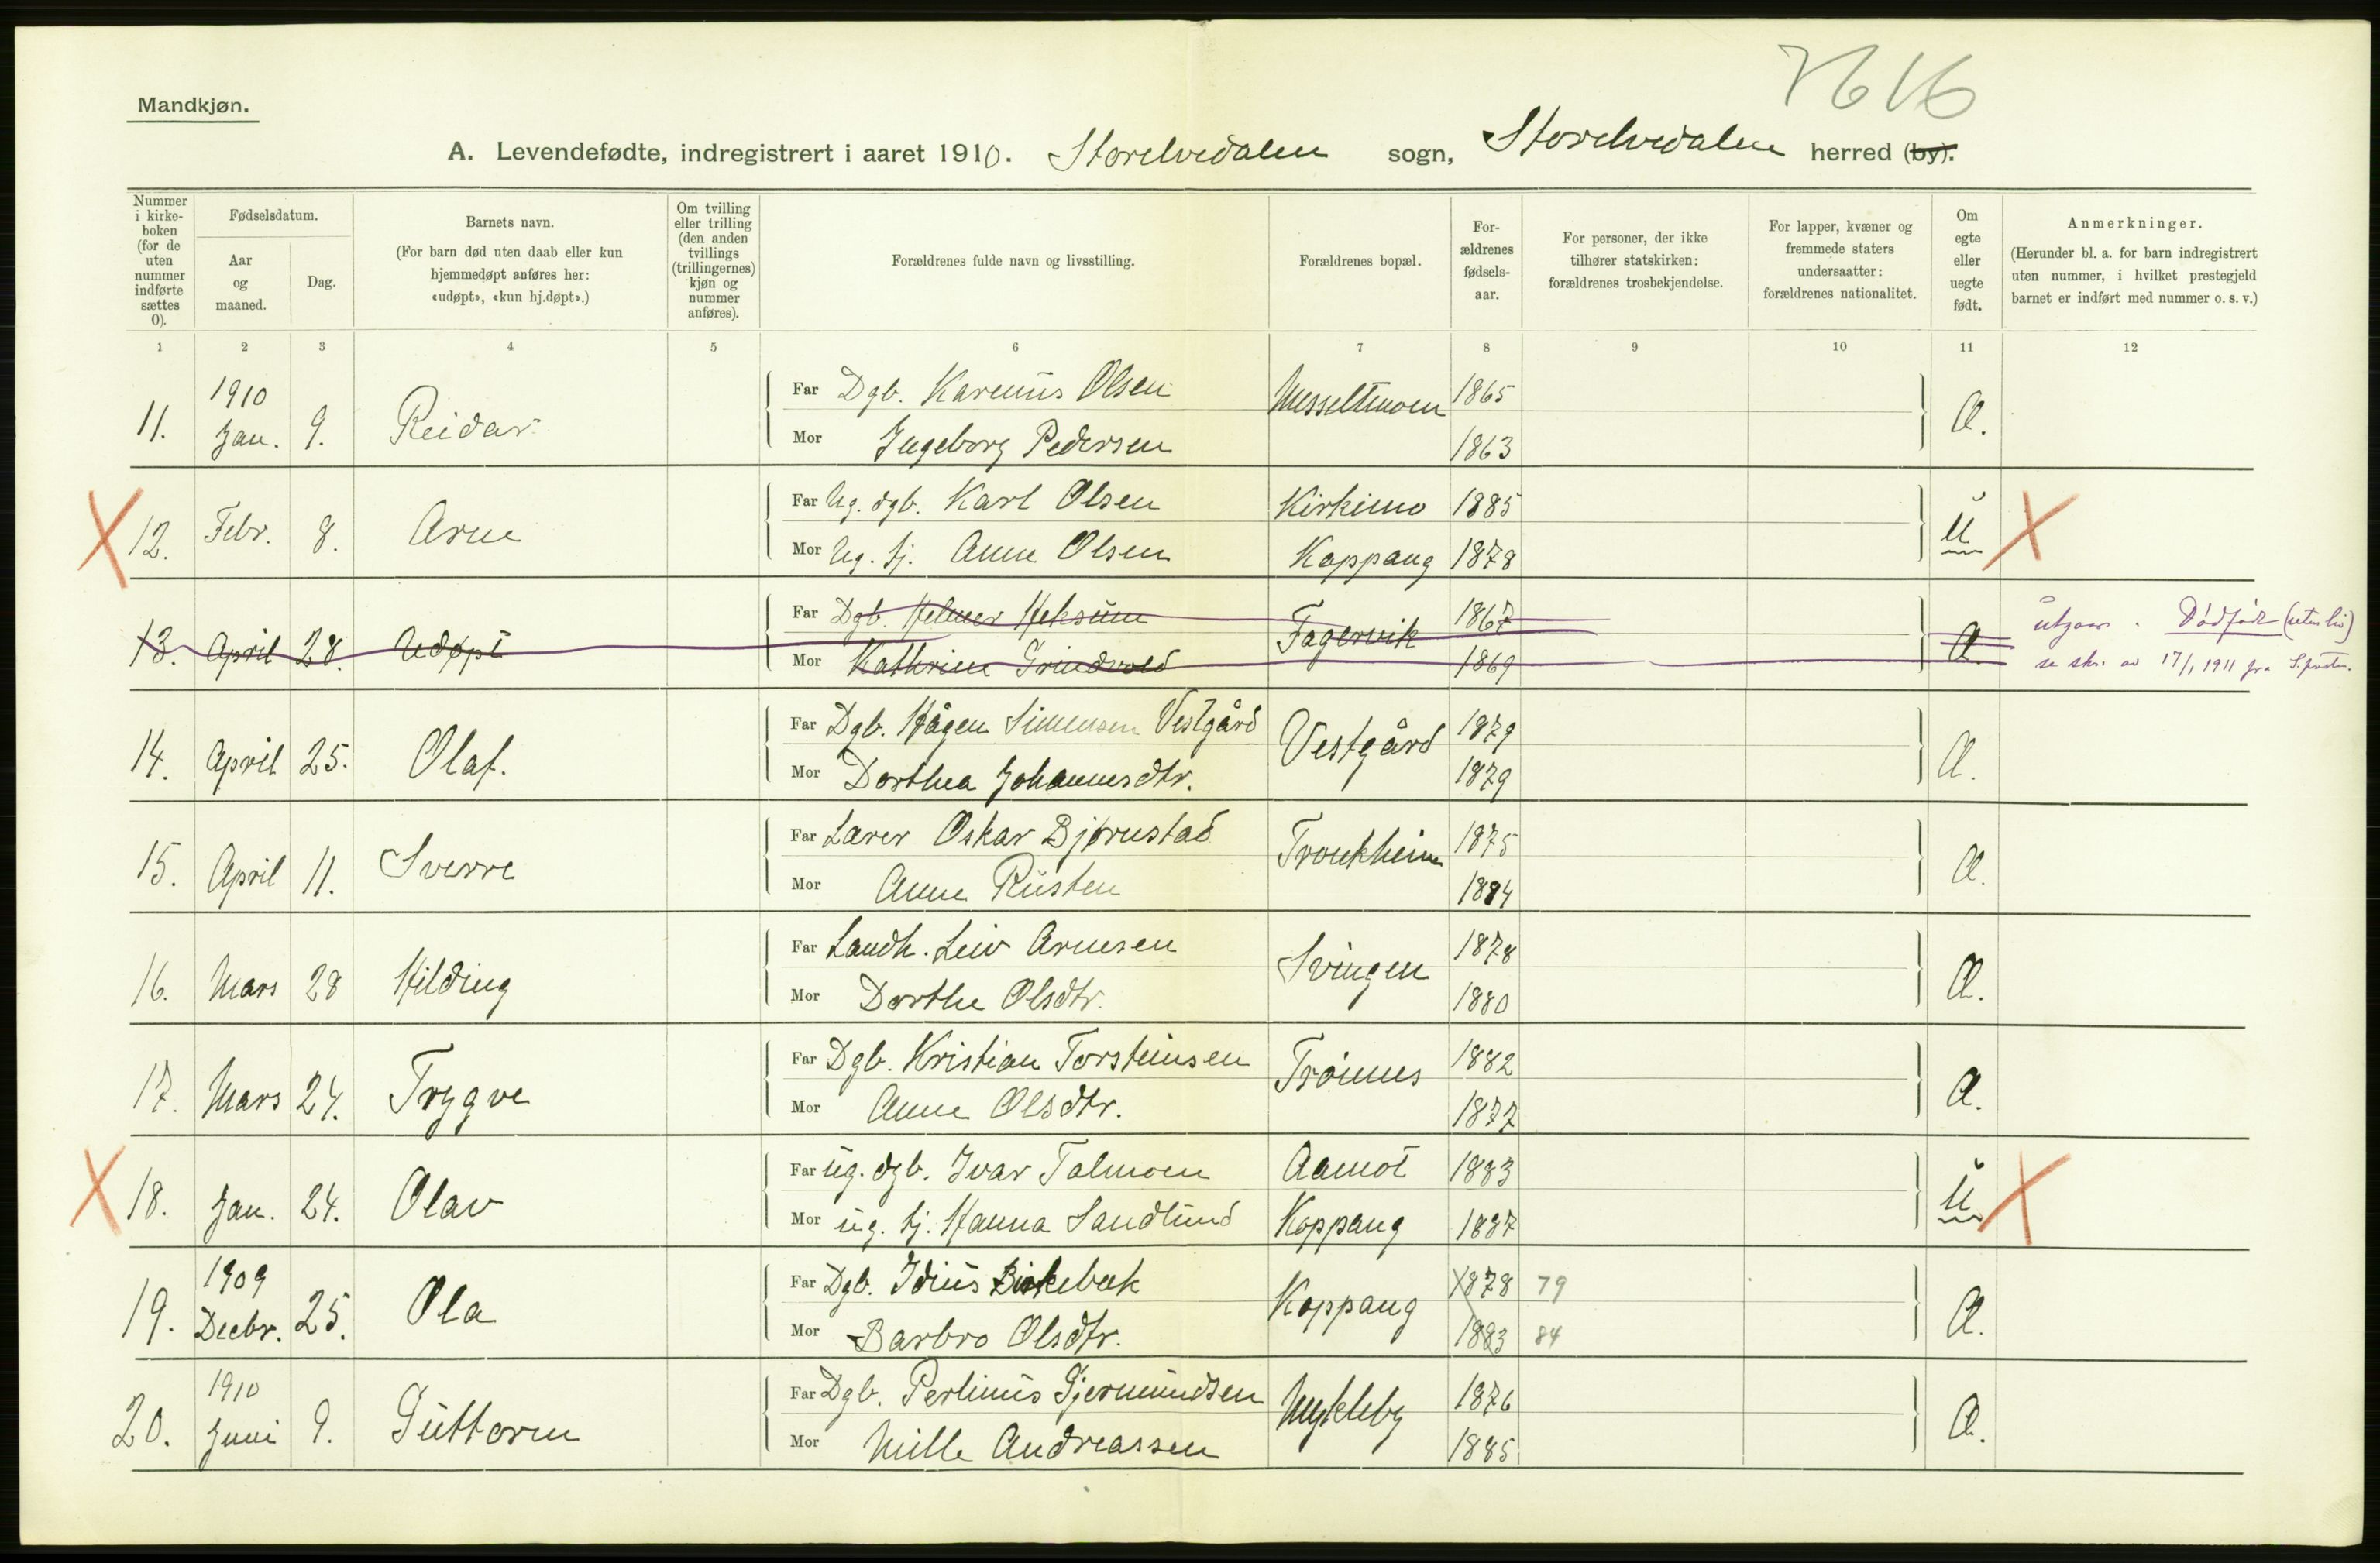 7616
Mandkjøn.
A. Levendefødte, indregistrert i aaret 1910. Storelvedalen sogn, Storelvedalen herred (by).
Nummer i kirkeboken (for de uten nummer indførte sættes 0).
Fødselsdatum.
Aar og maaned.
Dag.
Barnets navn.
(For barn død uten daab eller kun hjemmedøpt anføres her: «udøpt», «kun hj.døpt».)
Om tvilling eller trilling (den anden tvillings (trillingernes) kjøn og nummer anføres).
Forældrenes fulde navn og livsstilling.
Forældrenes bopæl.
Forældrenes fødselsaar.
For personer, der ikke tilhører statskirken: forældrenes trosbekjendelse.
For lapper, kvæner og fremmede staters undersaatter: forældrenes nationalitet.
Om egte eller uegte født.
Anmerkninger.
(Herunder bl. a. for barn indregistrert uten nummer, i hvilket prestegjeld barnet er indført med nummer o. s. v.)
1 2 3 4 5 6 7 8 9 10 11 12
1910
11. Jan. 9. Reidar Far Dgb. Karenus Olsen Messeltmoen 1865 Æ.
Mor Ingeborg Pedersen 1863
X 12. Febr. 8. Arne Far Ug. dgb. Karl Olsen Kirkemo 1885 U X
Mor Ug. tj. Anne Olsen Koppang 1878
13. April 28. Udøpt Far Dgb. Helmer Heksum Fagervik 1867 Æ. utgaar. Dødfødt (uten liv)
Mor Kathrine Grindvold 1869 se skr. av 17/1 1911 fra S.presten.
14. April 25. Olaf. Far Dgb. Hågen Simensen Vestgård Vestgård 1879 Æ.
Mor Dorthea Johannesdtr. 1879
15. April 11. Sverre Far Lærer Oskar Bjørnstad Tronkheim 1875 Æ.
Mor Anne Rusten 1884
16. Mars 28 Hilding Far Landh. Leiv Arnesen Svingen 1878 Æ.
Mor Dorthe Olsdtr. 1880
17. Mars 24. Trygve Far Dgb. Kristian Torsteinsen Trønnes 1882 Æ.
Mor Anne Olsdtr. 1877
X 18. Jan. 24. Olav Far ug. dgb. Ivar Talmoen Aamot 1883 U X
Mor ug. tj. Hanna Sandlund Koppang 1887
1909
19. Decbr. 25. Ola Far Dgb. Idius Birkebæk Koppang 1878 79 Æ.
Mor Barbro Olsdtr. 1883 84
1910
20. Juni 9. Guttorm Far Dgb. Perlinus Gjermundsen Mykleby 1876 Æ.
Mor Mille Andreassen 1885